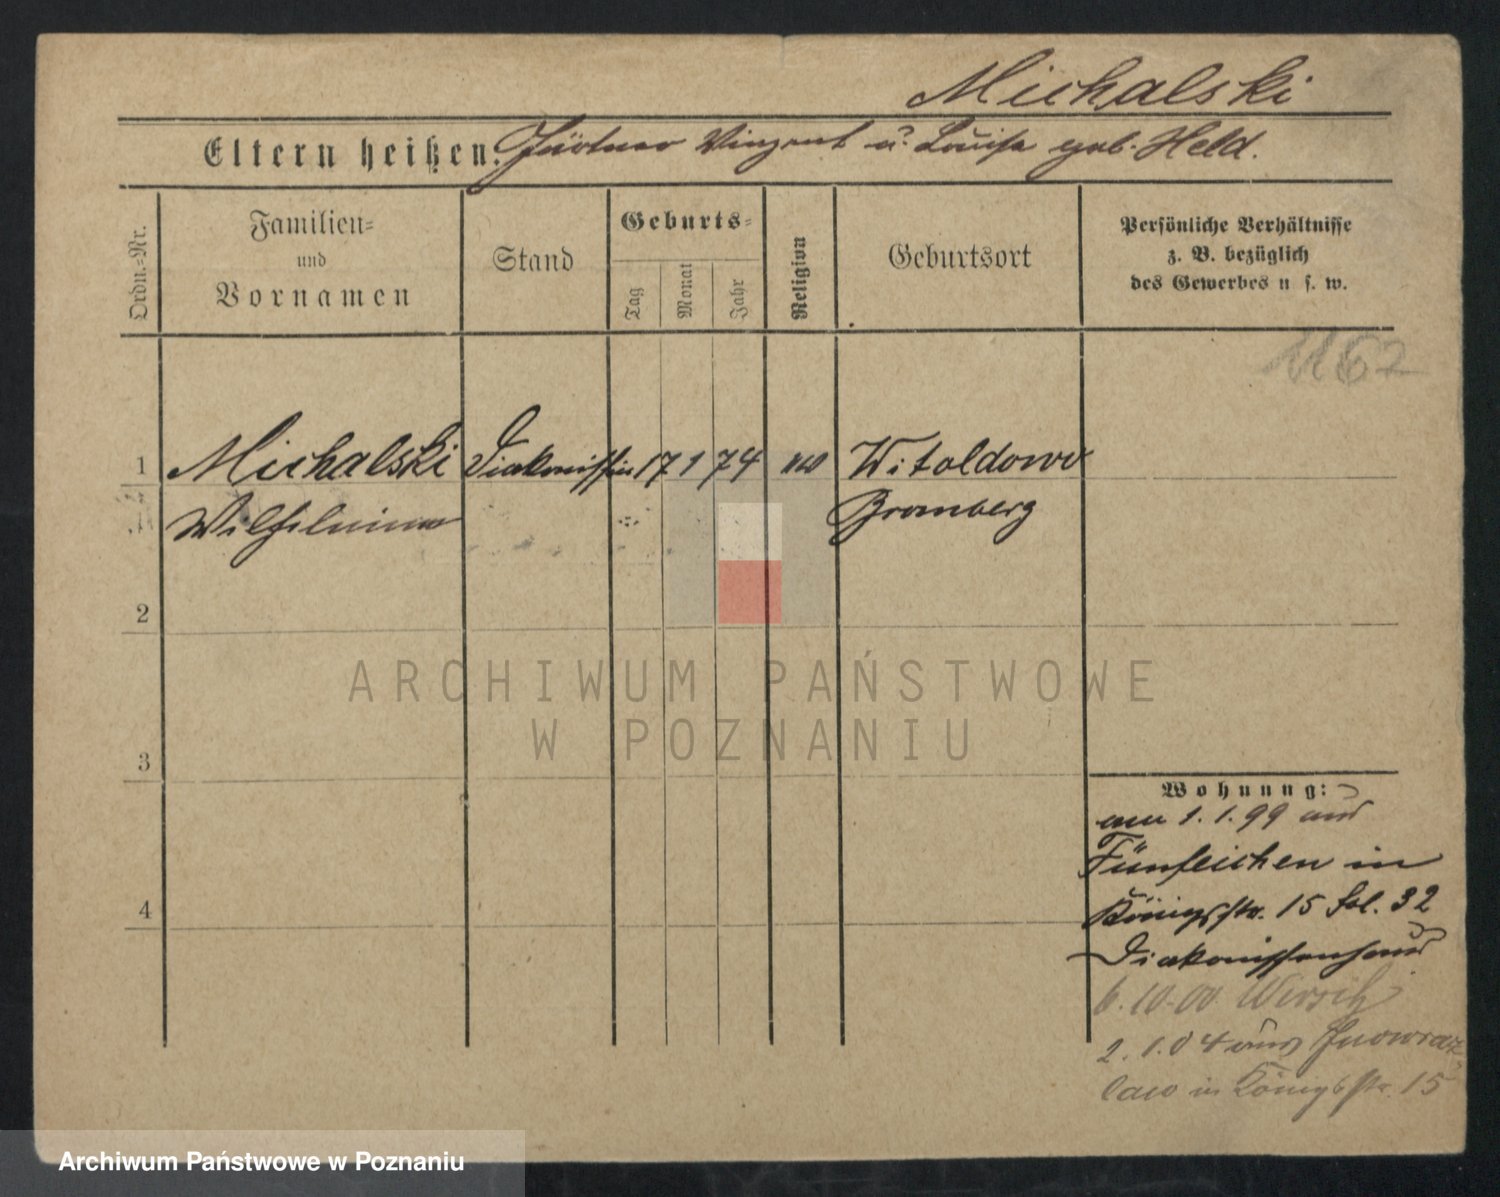 Michalski
Eltern heißen: Gärtner Vinzent u. Louise geb. Held.
Ordn.-Nr.
Familien=
und
Vornamen
Stand
Geburts=
Tag
Monat
Jahr
Religion
Geburtsort
Persönliche Verhältnisse
z. B. bezüglich
des Gewerbes u. s. w.
1162
1 Michalski Diakonissin 17 1 74 Witoldowo
Wilhelmine Bromberg
2
3
4
Wohnung:
am 1.1.99 aus
Fünfeichen in
Königsstr. 15 Fol. 32
Diakonissenhaus
6.10.00 Wirsitz
2.1.04 aus Inowraz
law in Königsstr. 15
ARCHIWUM PAŃSTWOWE
W POZNANIU
Archiwum Państwowe w Poznaniu